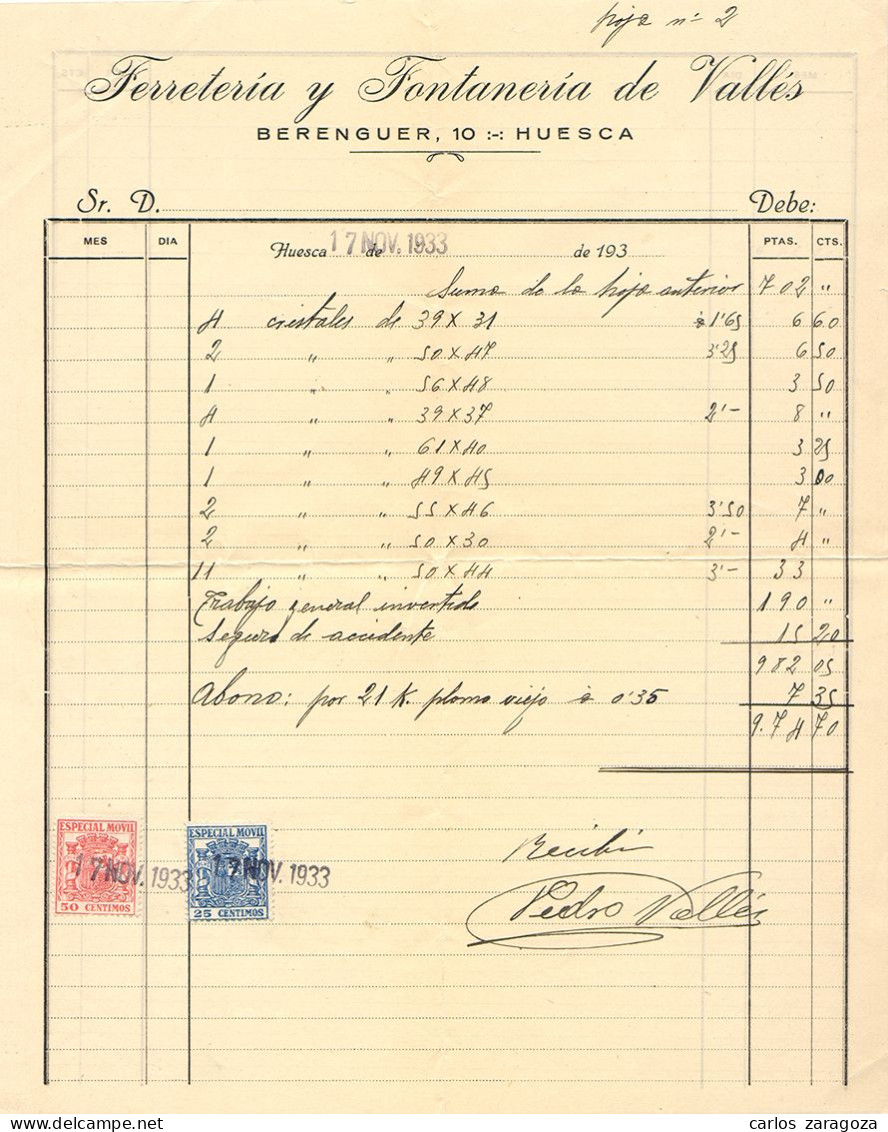 hoja nº 2
Ferretería y Fontanería de Vallés
BERENGUER, 10 :-: HUESCA
Sr. D. Debe:
MES DIA Huesca 17 NOV. 1933 de de 193 PTAS. CTS.
Suma de la hoja anterior 702 "
4 cristales de 39 X 31 à 1'65 6 60
2 " " 50 X 47 3'25 6 50
1 " " 56 X 48 3 50
4 " " 39 X 37 2'- 8 "
1 " " 61 X 40 3 25
1 " " 49 X 45 3 00
2 " " 55 X 46 3'50 7 "
2 " " 50 X 30 2'- 4 "
11 " " 50 X 44 3'- 33
Trabajo general invertido 190 "
Seguro de accidente 15 20
982 05
Abono: por 21 K. plomo viejo à 0'35 7 35
9.74 70
ESPECIAL MOVIL
17 NOV. 1933
50 CENTIMOS
ESPECIAL MOVIL
17 NOV. 1933
25 CENTIMOS
Recibí
Pedro Vallés
carlos zaragoza